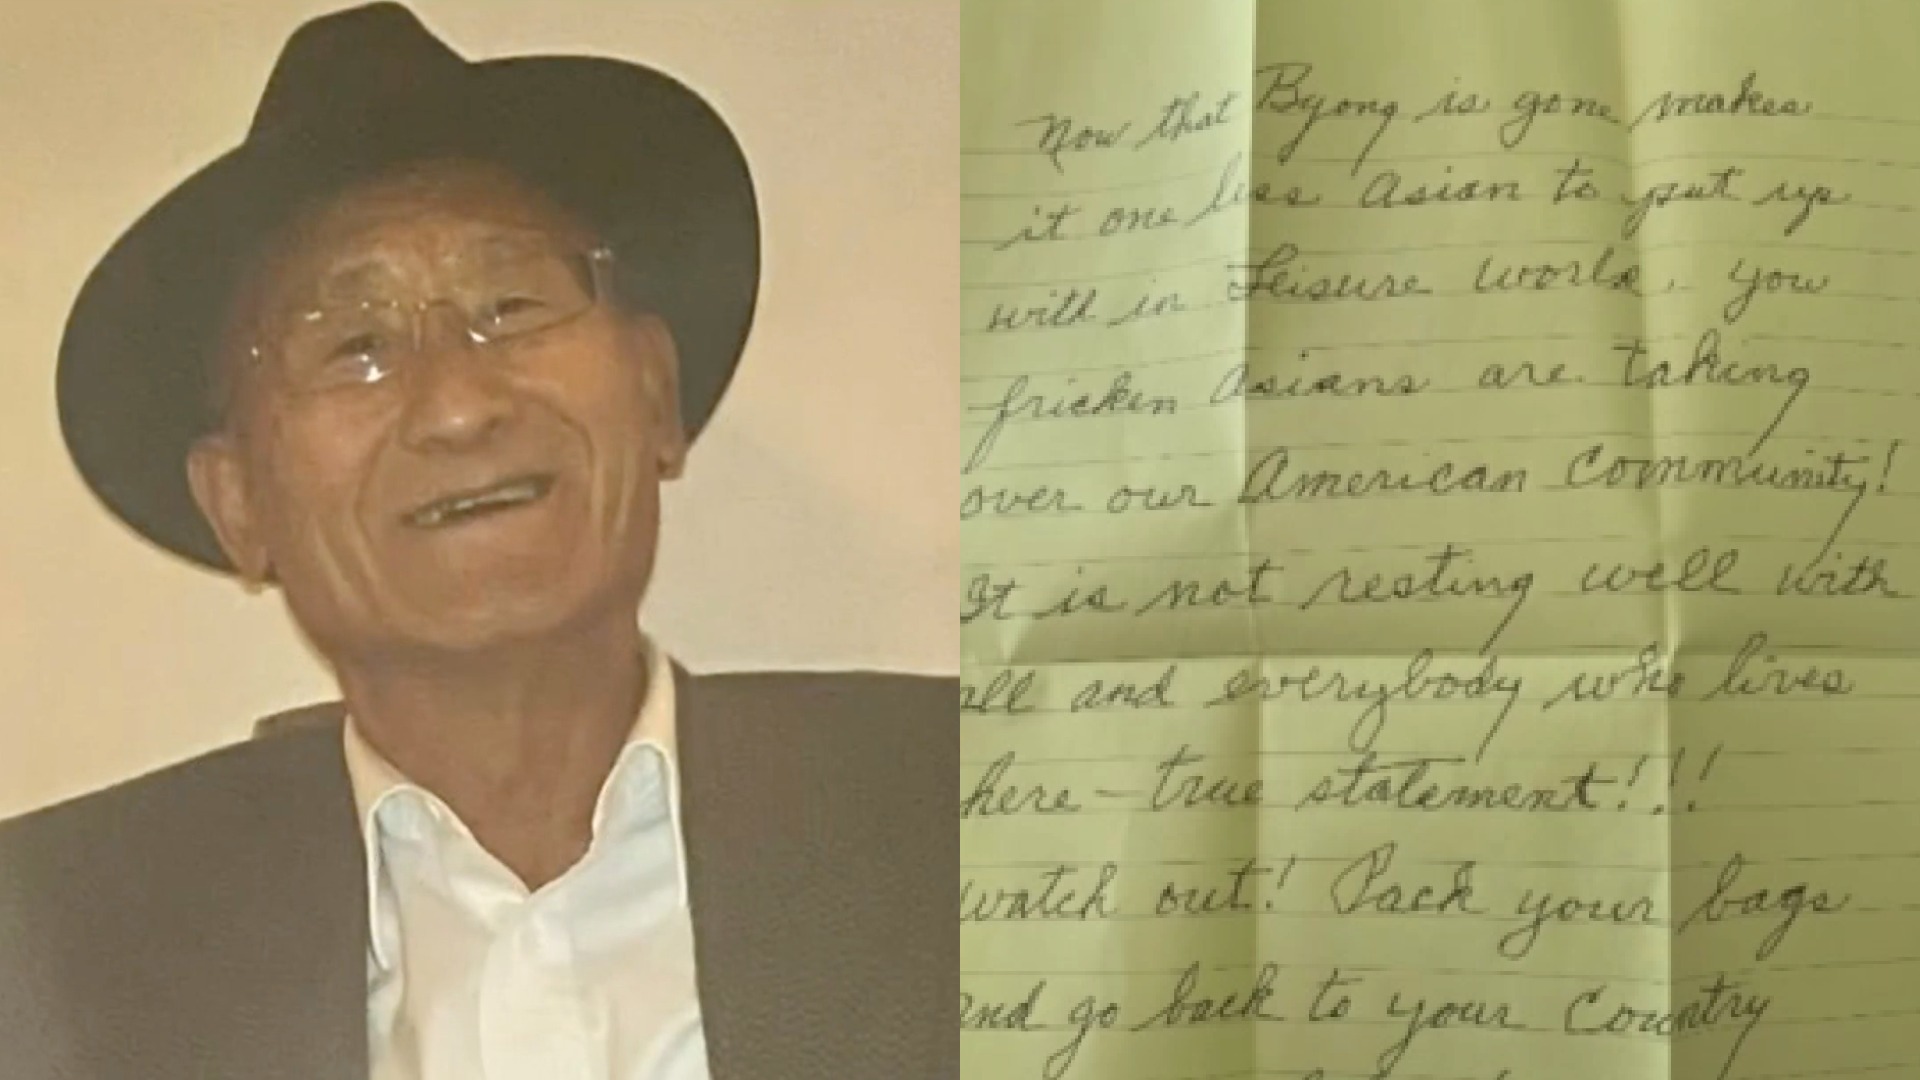 Now that Byong is gone makes
it one less Asian to put up
with in Leisure World. You
fricken Asians are taking
over our American Community!
It is not resting well with
all and everybody who lives
here - true statement!!!
Watch out! Pack your bags
and go back to your Country